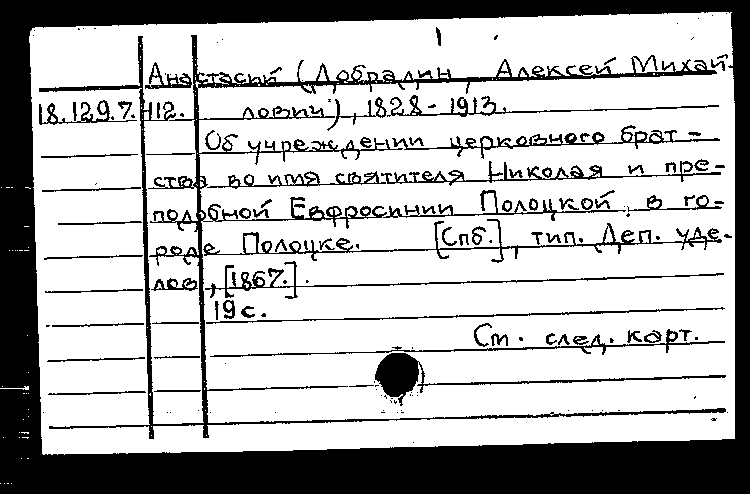 1
Анастасий (Добрадин, Алексей Михай-
18.129.7.412. лович), 1828-1913.
Об учреждении церковного брат-
ства во имя святителя Николая и пре-
подобной Евфросинии Полоцкой, в го-
роде Полоцке. [Спб.], тип. Деп. уде-
лов, [1867.].
19 с.
См. след. карт.